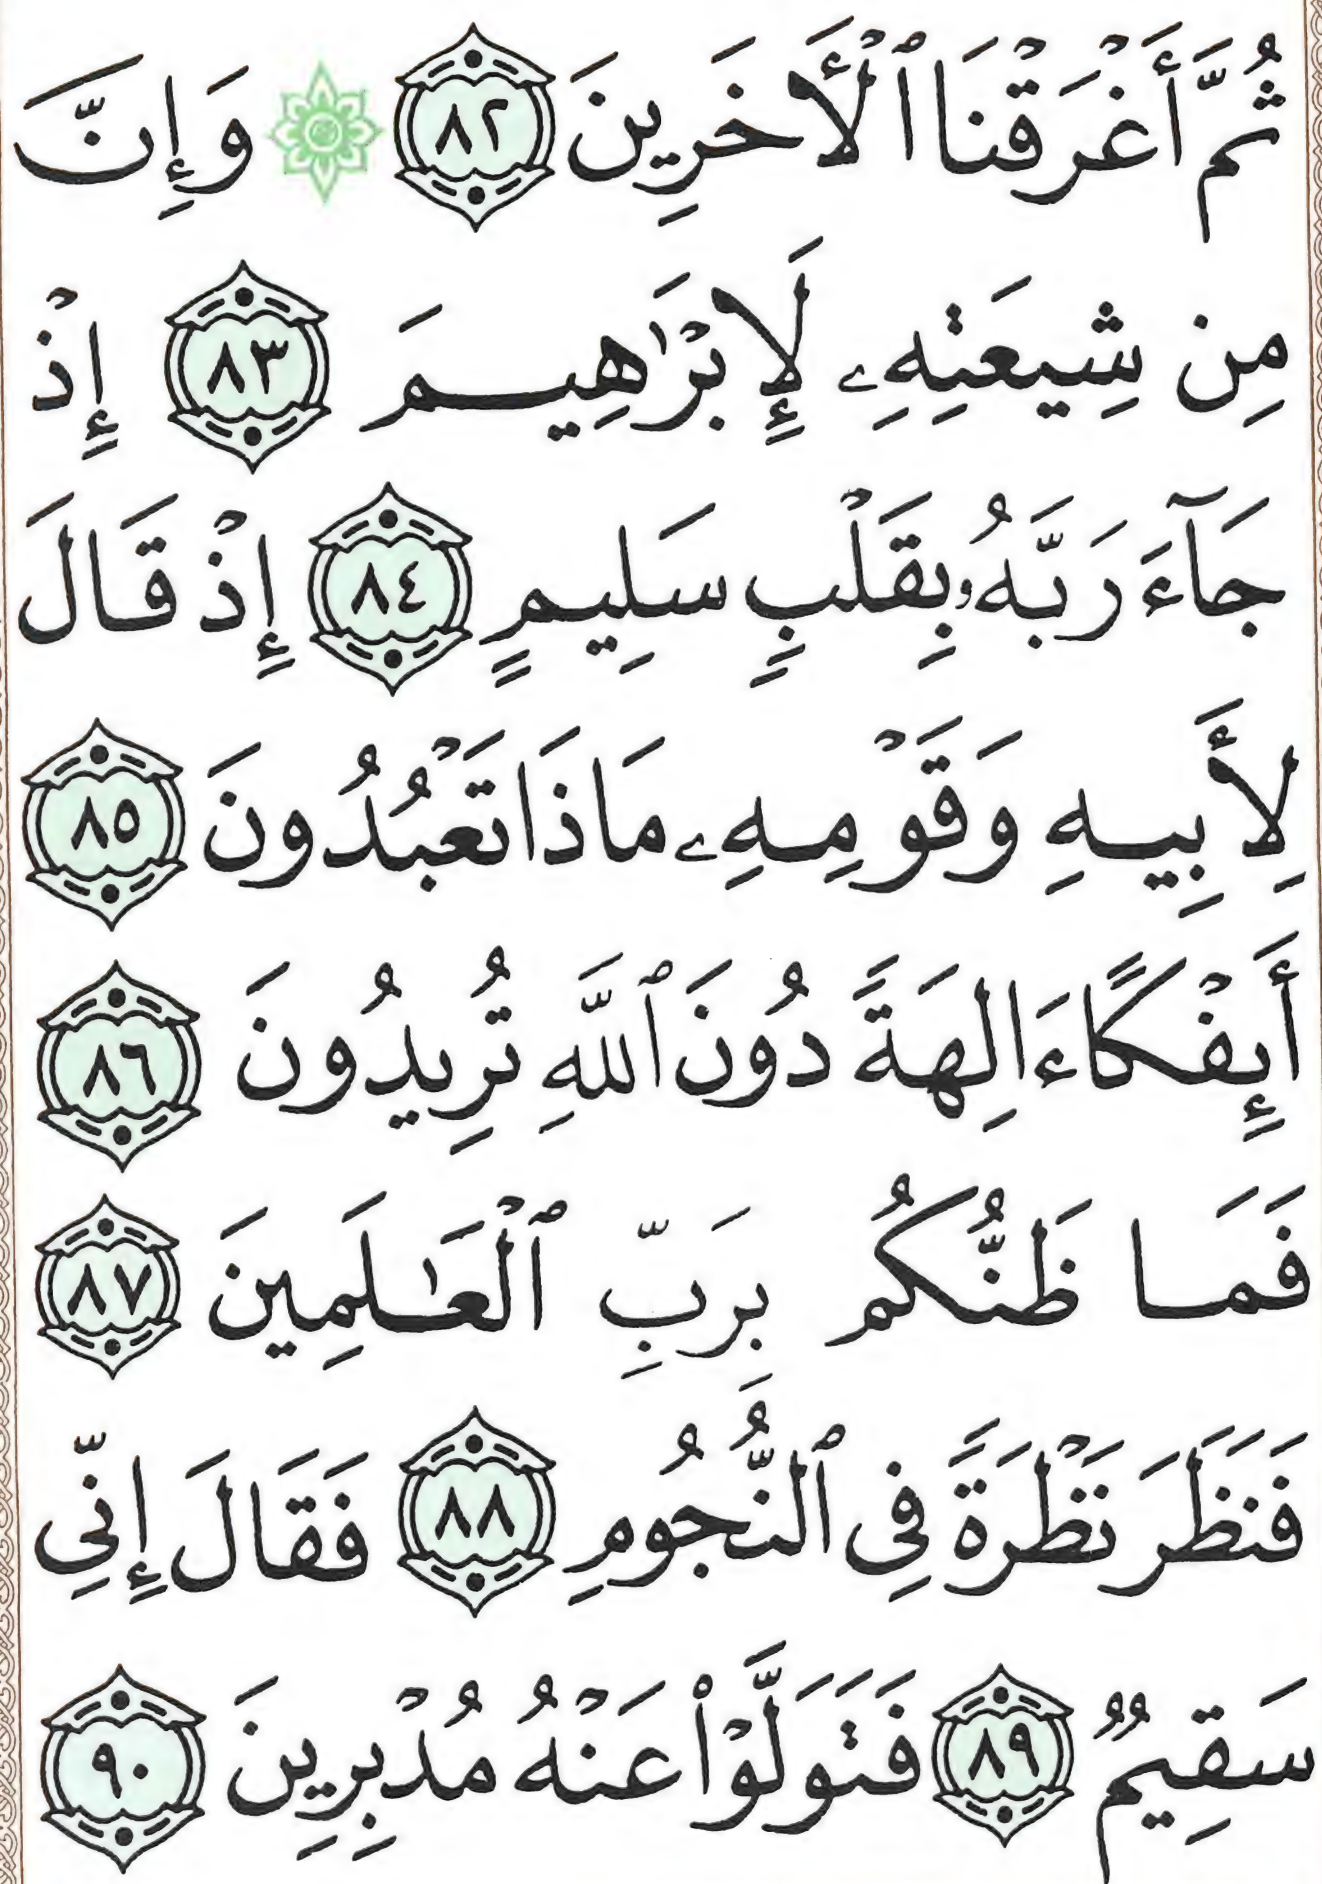 ثُمَّ أَغْرَقْنَا ٱلْأَخَرِينَ ٨٢ ۞ وَإِنَّ
مِن شِيعَتِهِۦ لَإِبْرَٰهِيمَ ٨٣ إِذْ
جَآءَ رَبَّهُۥ بِقَلْبٍ سَلِيمٍ ٨٤ إِذْ قَالَ
لِأَبِيهِ وَقَوْمِهِۦ مَاذَا تَعْبُدُونَ ٨٥
أَئِفْكًا ءَالِهَةً دُونَ ٱللَّهِ تُرِيدُونَ ٨٦
فَمَا ظَنُّكُم بِرَبِّ ٱلْعَٰلَمِينَ ٨٧
فَنَظَرَ نَظْرَةً فِى ٱلنُّجُومِ ٨٨ فَقَالَ إِنِّى
سَقِيمٌ ٨٩ فَتَوَلَّوْا۟ عَنْهُ مُدْبِرِينَ ٩٠